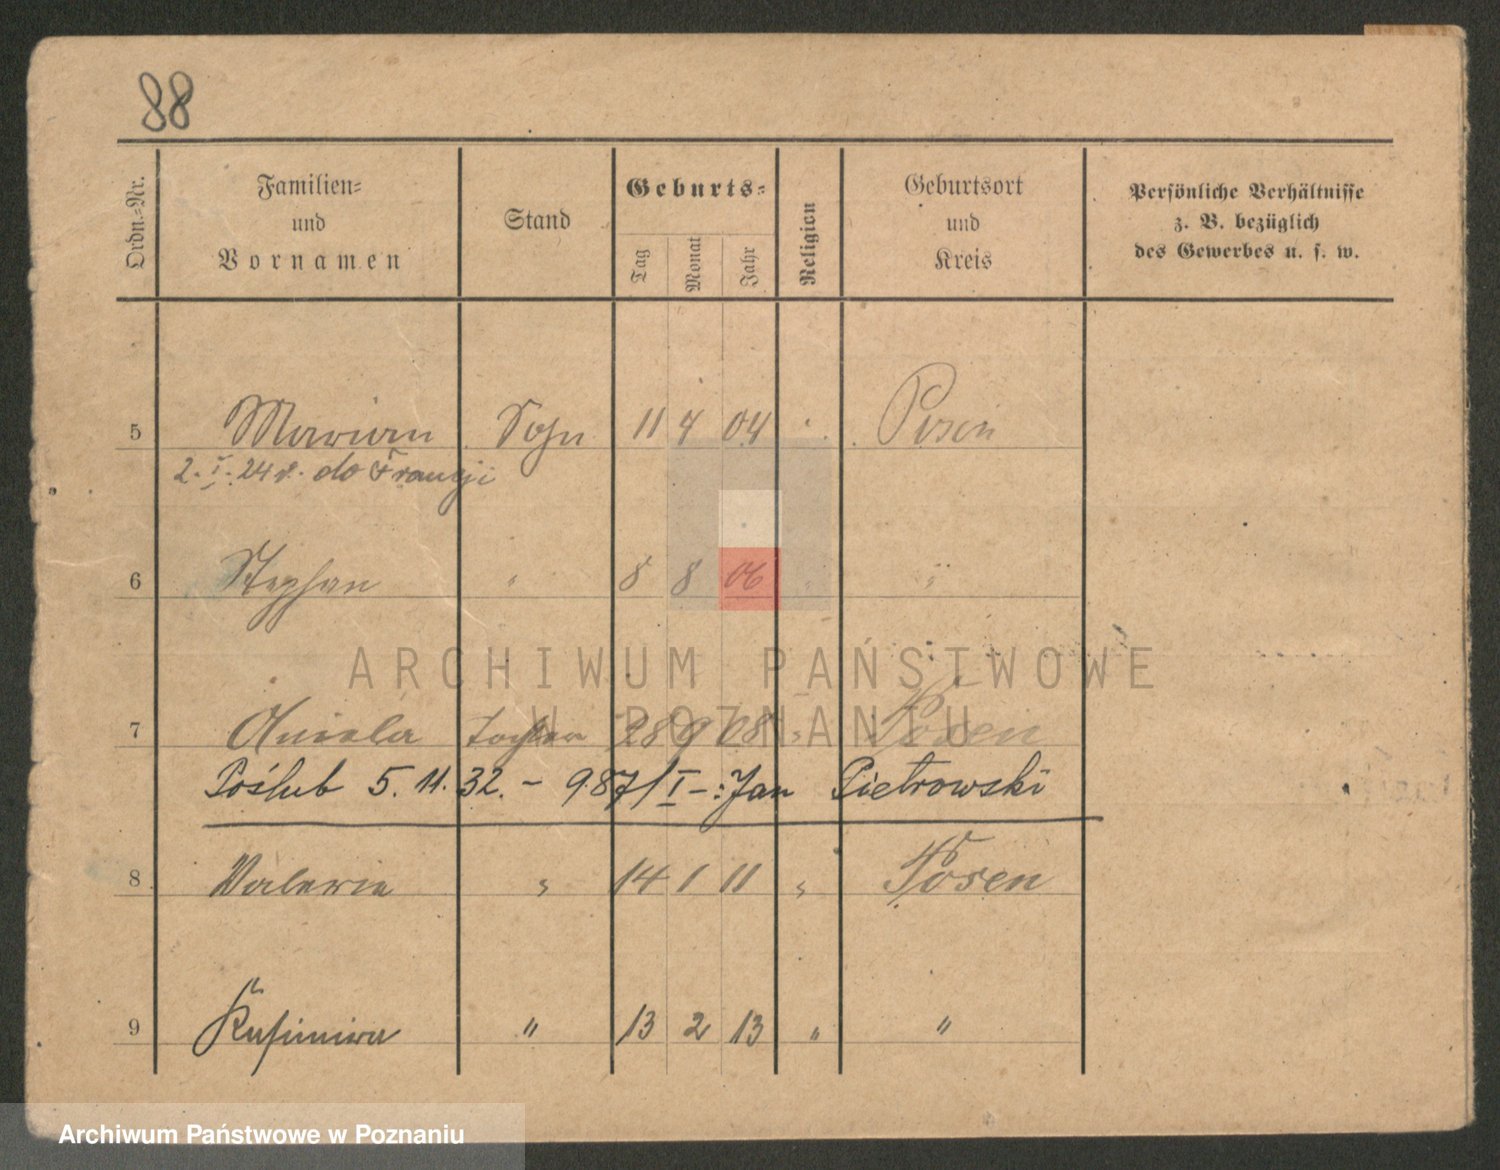 88
Ordn.-Nr.
Familien-
und
Vornamen
Stand
Geburts-
Tag
Monat
Jahr
Religion
Geburtsort
und
Kreis
Persönliche Verhältnisse
z. B. bezüglich
des Gewerbes u. s. w.
5 Marian Sohn 11 4 04 Posen
2. I. 24 r. do Francji
6 Stephan " 8 8 06 " "
ARCHIWUM PAŃSTWOWE
W POZNANIU
7 Aniela Tochter 28 9 08 " Posen
Poślub 5. 11. 32. – 987/I –: Jan Pietrowski
8 Valerie " 14 1 11 " Posen
9 Kasimira " 13 2 13 " "
Archiwum Państwowe w Poznaniu